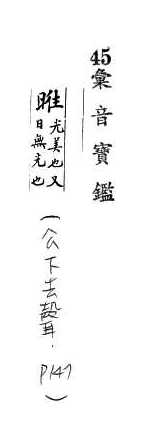 45彙音寶鑑
暀
光美也又
日無光也
(公下去聲. P147)